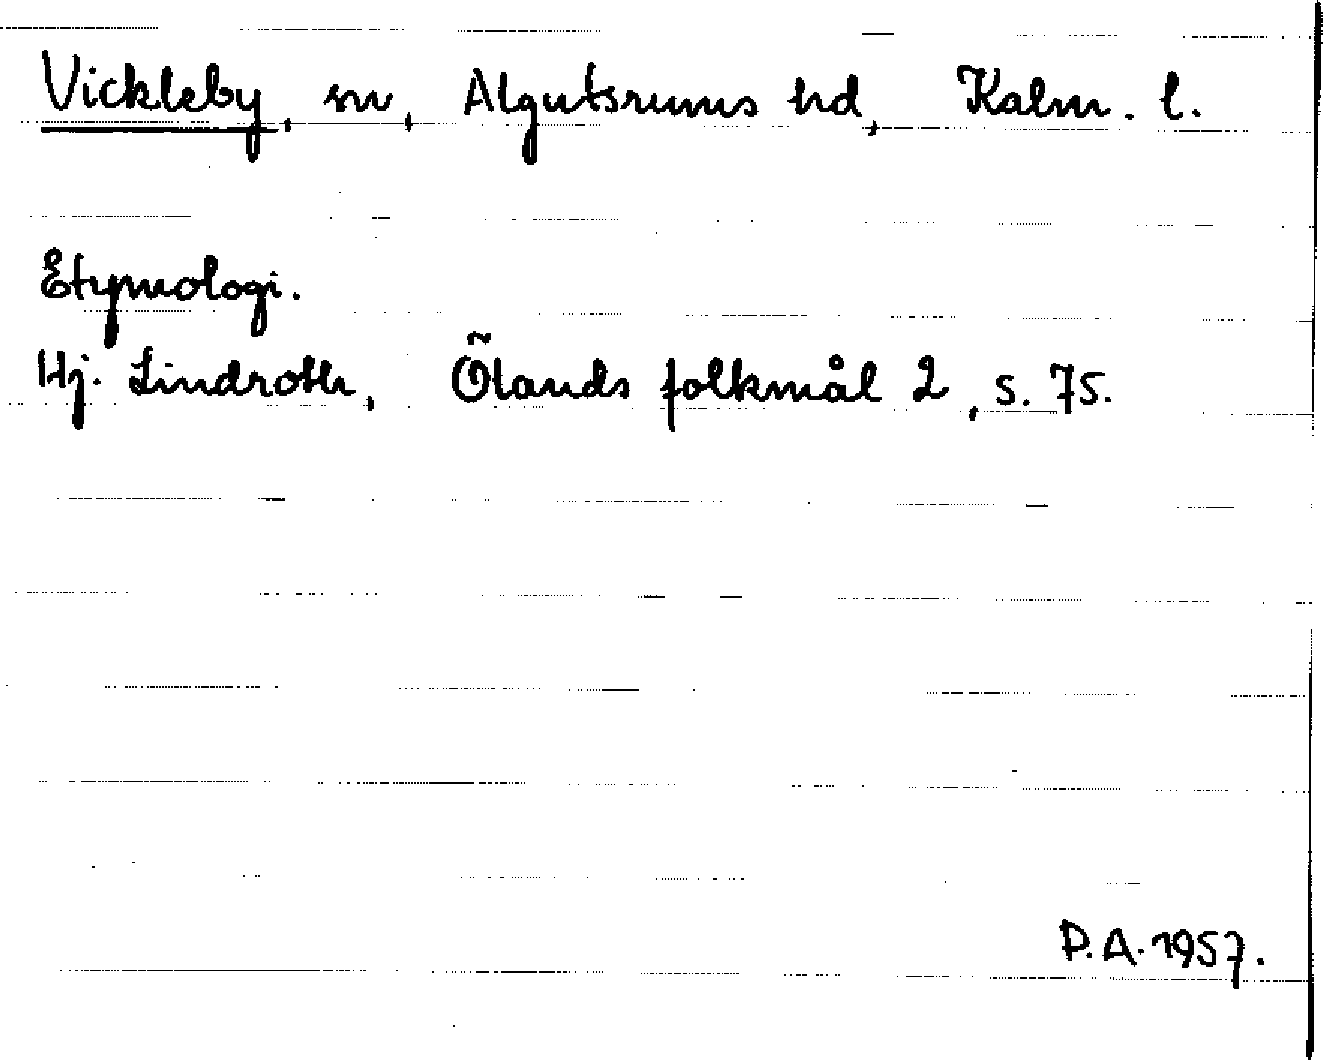 Vickleby, sn, Algutsrums hd, Kalm. l.
Etymologi.
Hj. Lindroth, Ölands folkmål 2, s. 75.
P.A. 1957.